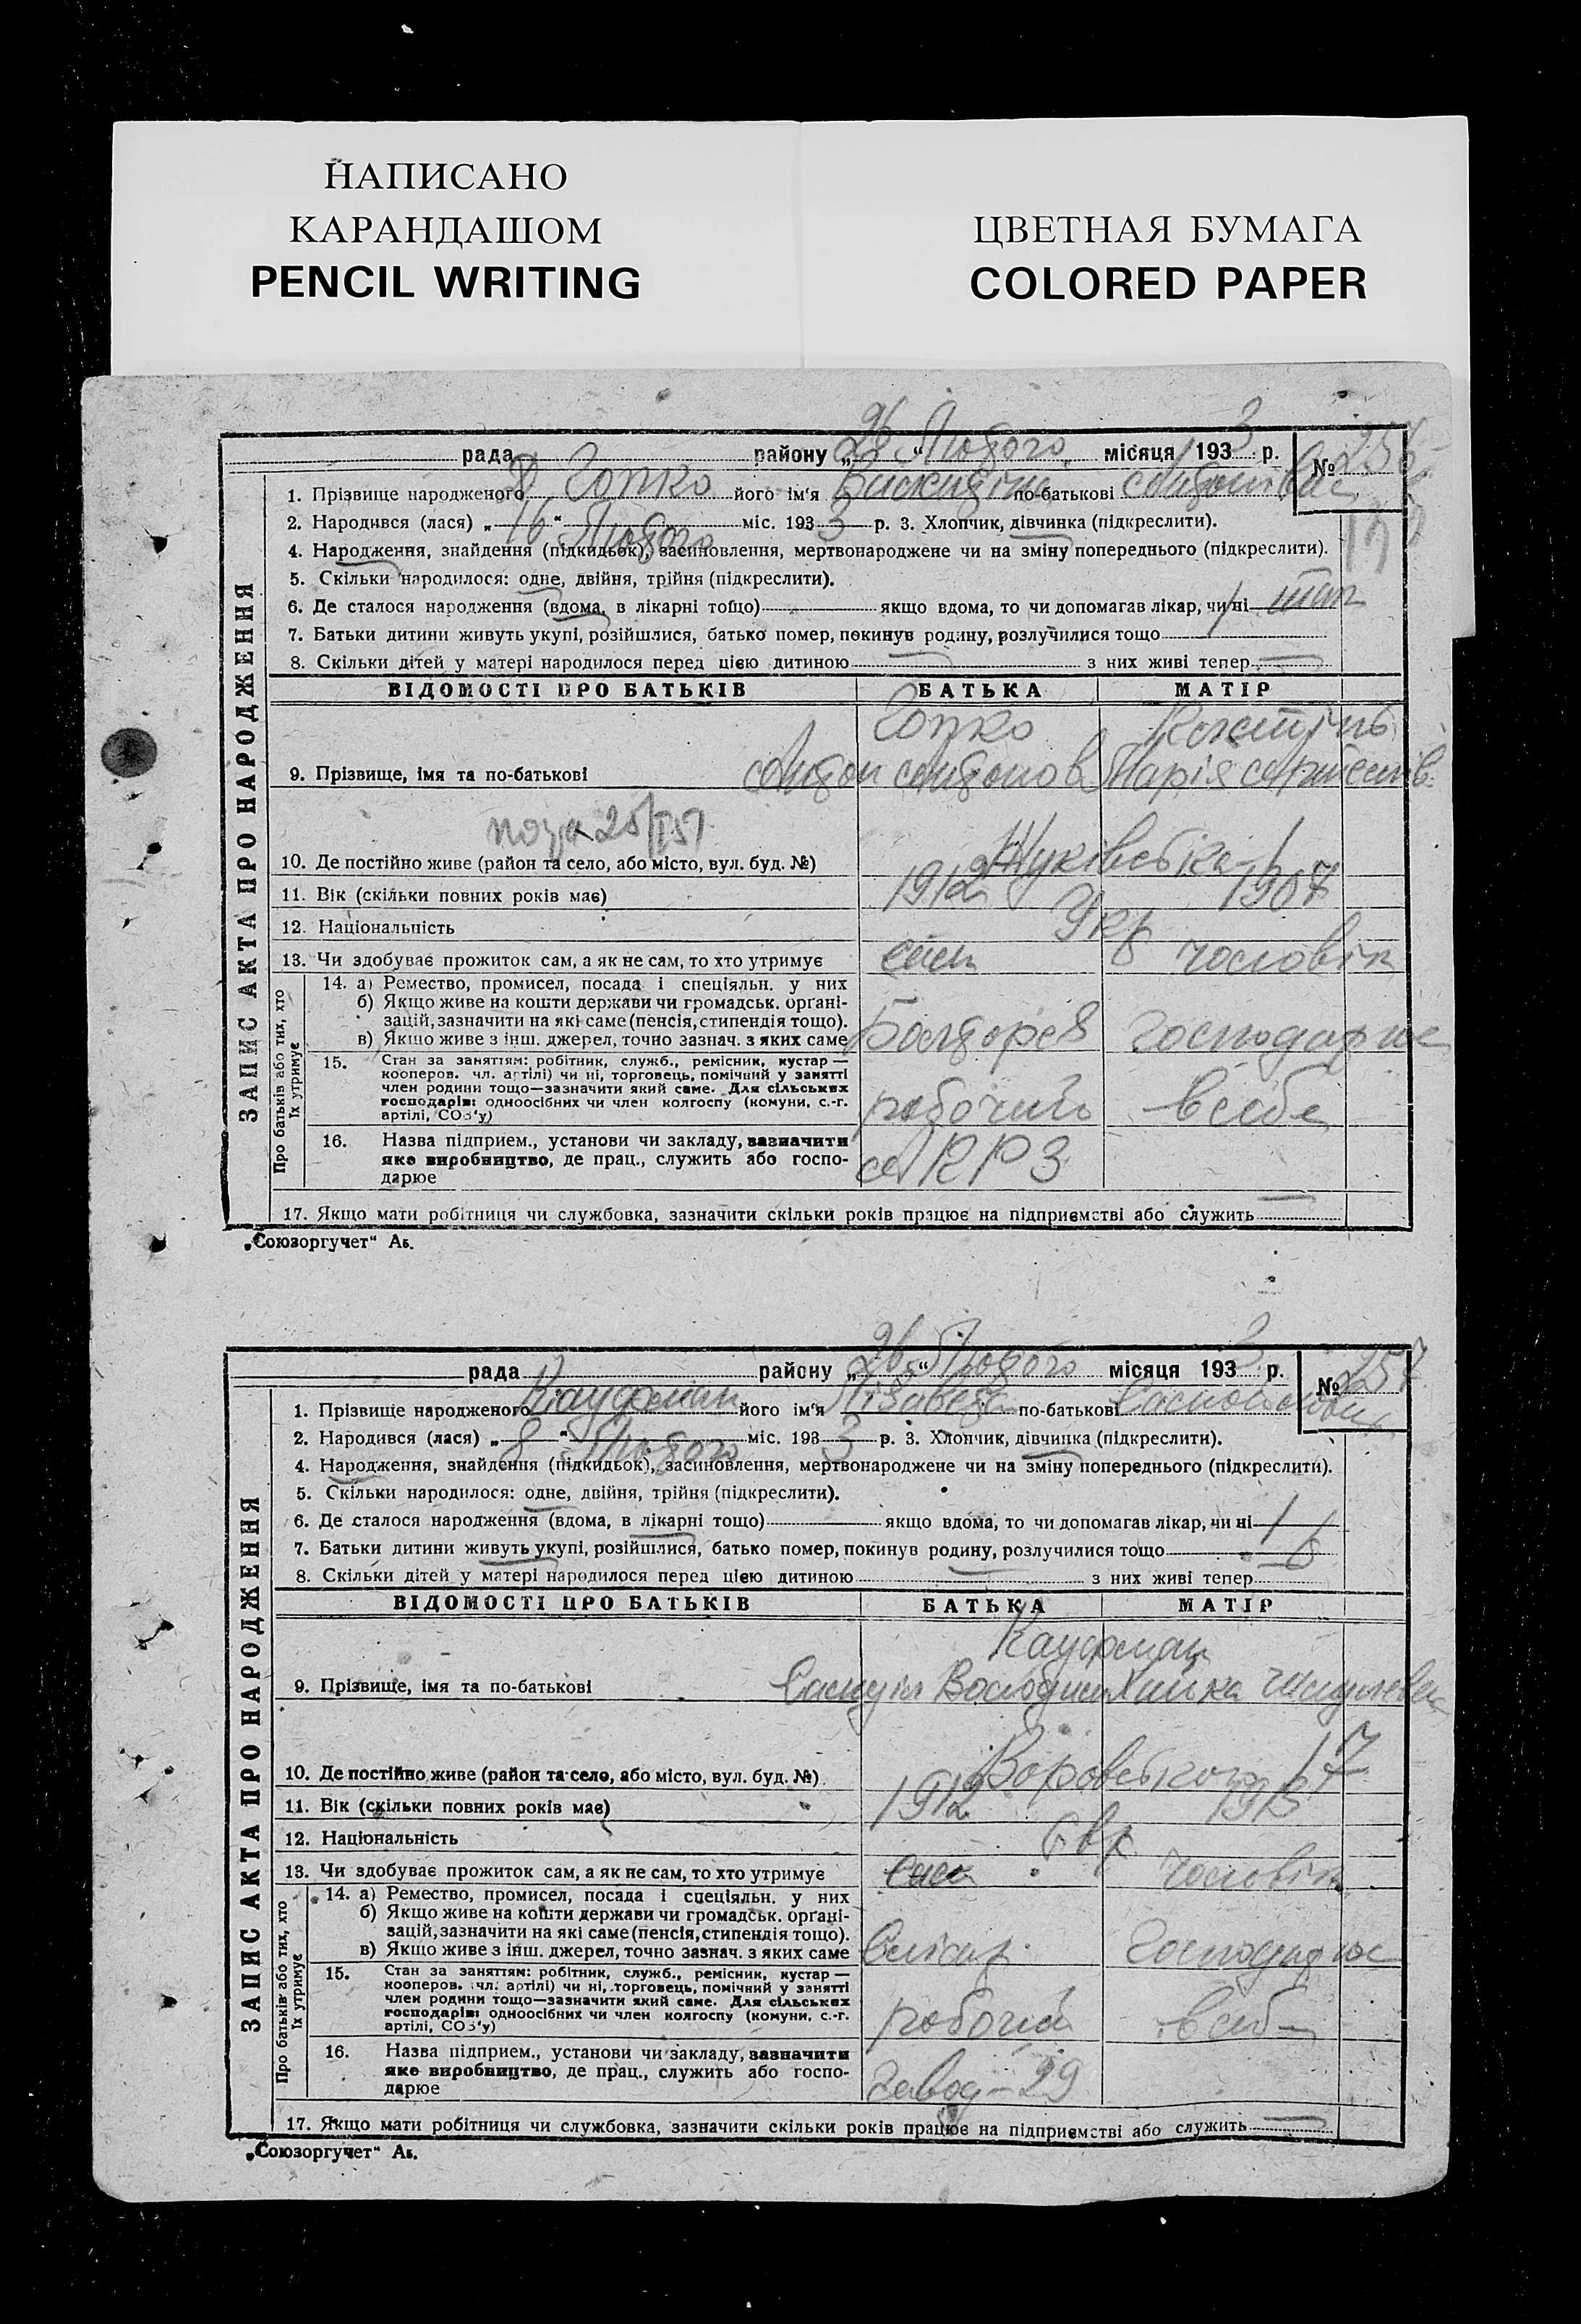 НАПИСАНО
КАРАНДАШОМ
PENCIL WRITING
ЦВЕТНАЯ БУМАГА
COLORED PAPER
ЗАПИС АКТА ПРО НАРОДЖЕННЯ
рада району „26“ Лютого місяця 1933 р. №
1. Прізвище народженого Гопко його ім'я по-батькові
2. Народився (лася) „16“ Лютого міс. 1933 р. 3. Хлопчик, дівчинка (підкреслити).
4. Народження, знайдення (підкидьок), засиновлення, мертвонароджене чи на зміну попереднього (підкреслити).
5. Скільки народилося: одне, двійня, трійня (підкреслити).
6. Де сталося народження (вдома, в лікарні тощо) якщо вдома, то чи допомагав лікар, чи ні
7. Батьки дитини живуть укупі, розійшлися, батько помер, покинув родину, розлучилися тощо
8. Скільки дітей у матері народилося перед цією дитиною з них живі тепер
ВІДОМОСТІ ПРО БАТЬКІВ БАТЬКА МАТІР
Гопко
9. Прізвище, імя та по-батькові Антон Антонов Марія
10. Де постійно живе (район та село, або місто, вул. буд. №) Жуківська
11. Вік (скільки повних років має) 1912 1907
12. Національність Укр
13. Чи здобуває прожиток сам, а як не сам, то хто утримує сам чоловік
Про батьків або тих, хто їх утримує
14. а) Ремество, промисел, посада і спеціяльн. у них
б) Якщо живе на кошти держави чи громадськ. орґані-
зацій, зазначити на які саме (пенсія, стипендія тощо).
в) Якщо живе з інш. джерел, точно зазнач. з яких саме
15. Стан за заняттям: робітник, служб., ремісник, кустар —
кооперов. чл. артілі) чи ні, торговець, помічний у занятті
член родини тощо—зазначити який саме. Для сільських
господарів: одноосібних чи член колгоспу (комуни, с.-г.
артілі, СОЗ'у)
робочий в себе
16. Назва підприєм., установи чи закладу, зазначити
яке виробництво, де прац., служить або госпо-
дарює
17. Якщо мати робітниця чи службовка, зазначити скільки років працює на підприємстві або служить
„Союзоргучет“ Аб.
ЗАПИС АКТА ПРО НАРОДЖЕННЯ
рада району „26“ Лютого місяця 1933 р. № 257
1. Прізвище народженого Кауфман його ім'я Лізавета по-батькові
2. Народився (лася) „8“ Лютого міс. 1933 р. 3. Хлопчик, дівчинка (підкреслити).
4. Народження, знайдення (підкидьок), засиновлення, мертвонароджене чи на зміну попереднього (підкреслити).
5. Скільки народилося: одне, двійня, трійня (підкреслити).
6. Де сталося народження (вдома, в лікарні тощо) якщо вдома, то чи допомагав лікар, чи ні
7. Батьки дитини живуть укупі, розійшлися, батько помер, покинув родину, розлучилися тощо
8. Скільки дітей у матері народилося перед цією дитиною з них живі тепер
ВІДОМОСТІ ПРО БАТЬКІВ БАТЬКА МАТІР
Кауфман
9. Прізвище, імя та по-батькові Самуіл
10. Де постійно живе (район та село, або місто, вул. буд. №) Воровського 17
11. Вік (скільки повних років має) 1912 1913
12. Національність Євр
13. Чи здобуває прожиток сам, а як не сам, то хто утримує сам чоловік
Про батьків або тих, хто їх утримує
14. а) Ремество, промисел, посада і спеціяльн. у них
б) Якщо живе на кошти держави чи громадськ. орґані-
зацій, зазначити на які саме (пенсія, стипендія тощо).
в) Якщо живе з інш. джерел, точно зазнач. з яких саме
Слісар
15. Стан за заняттям: робітник, служб., ремісник, кустар —
кооперов. чл. артілі) чи ні, торговець, помічний у занятті
член родини тощо—зазначити який саме. Для сільських
господарів: одноосібних чи член колгоспу (комуни, с.-г.
артілі, СОЗ'у)
робочий в себе
16. Назва підприєм., установи чи закладу, зазначити
яке виробництво, де прац., служить або госпо-
дарює
завод-29
17. Якщо мати робітниця чи службовка, зазначити скільки років працює на підприємстві або служить
„Союзоргучет“ Аб.